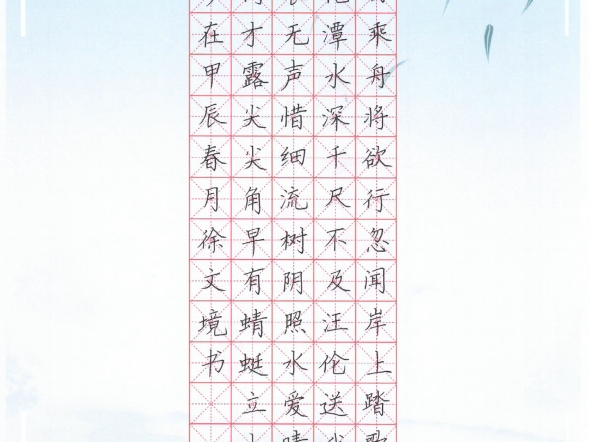 乘舟将欲行忽闻岸上踏歌
潭水深千尺不及汪伦送
无声惜细流树阴照水爱晴
才露尖尖角早有蜻蜓立上
在甲辰春月徐文境书